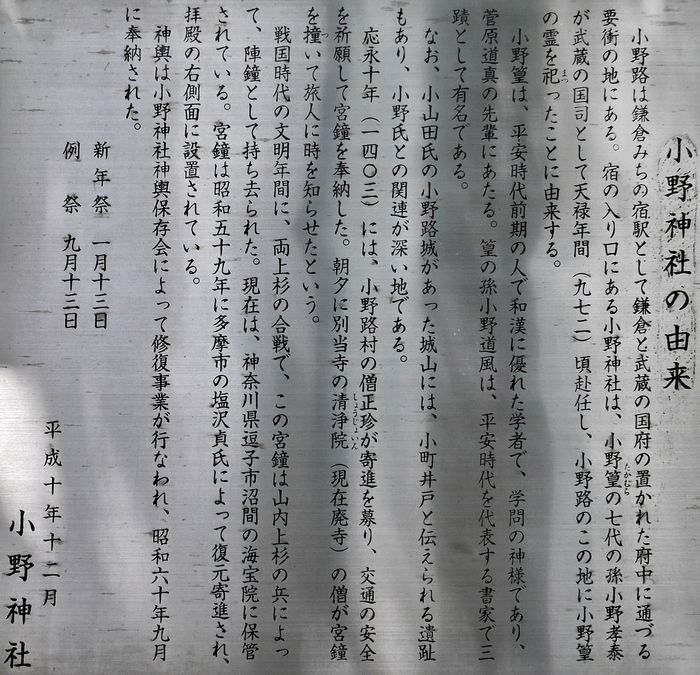 小野神社の由来
小野路は鎌倉みちの宿駅として鎌倉と武蔵の国府の置かれた府中に通づる
要衝の地にある。宿の入り口にある小野神社は、小野篁の七代の孫小野孝泰
たかむら
が武蔵の国司として天禄年間（九七二）頃赴任し、小野路のこの地に小野篁
の霊を祀ったことに由来する。
まつ
小野篁は、平安時代前期の人で和漢に優れた学者で、学問の神様であり、
菅原道真の先輩にあたる。篁の孫小野道風は、平安時代を代表する書家で三
蹟として有名である。
なお、小山田氏の小野路城があった城山には、小町井戸と伝えられる遺趾
もあり、小野氏との関連が深い地である。
応永十年（一四〇三）には、小野路村の僧正珍が寄進を募り、交通の安全
を祈願して宮鐘を奉納した。朝夕に別当寺の清浄院（現在廃寺）の僧が宮鐘
しょうじょいん
を撞いて旅人に時を知らせたという。
つ
戦国時代の文明年間に、両上杉の合戦で、この宮鐘は山内上杉の兵によっ
て、陣鐘として持ち去られた。現在は、神奈川県逗子市沼間の海宝院に保管
されている。宮鐘は昭和五十九年に多摩市の塩沢貞氏によって復元寄進され、
拝殿の右側面に設置されている。
神輿は小野神社神輿保存会によって修復事業が行なわれ、昭和六十年九月
に奉納された。
新年祭 一月十三日
例祭 九月十三日
平成十年十二月
小野神社